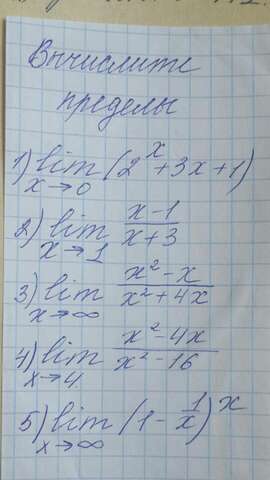 Вычислите
пределы
1) lim (2^x + 3x + 1)
x → 0
2) lim (x - 1)/(x + 3)
x → 1
3) lim (x² - x)/(x² + 4x)
x → ∞
4) lim (x² - 4x)/(x² - 16)
x → 4
5) lim (1 - 1/x)^x
x → ∞